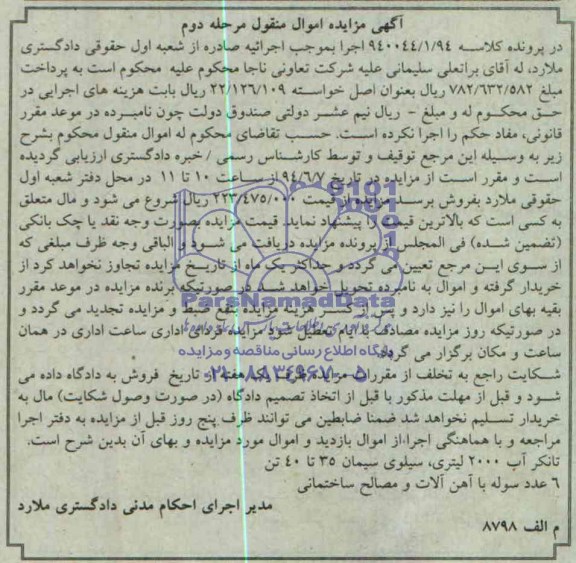 آگهی مزایده اموال منقول مرحله دوم
در پرونده کلاسه ۹۴۰۰۴۴/۱/۹۴ اجرا بموجب اجرائیه صادره از شعبه اول حقوقی دادگستری
ملارد، له آقای براتعلی سلیمانی علیه شرکت تعاونی ناجا محکوم علیه محکوم است به پرداخت
مبلغ ۷۸۲/۶۳۲/۵۸۲ ریال بعنوان اصل خواسته ۲۲/۱۲۶/۱۰۹ ریال بابت هزینه های اجرایی در
حق محکوم له و مبلغ - ریال نیم عشر دولتی صندوق دولت چون نامبرده در موعد مقرر
قانونی، مفاد حکم را اجرا نکرده است. حسب تقاضای محکوم له اموال منقول محکوم بشرح
زیر به وسیله این مرجع توقیف و توسط کارشناس رسمی / خبره دادگستری ارزیابی گردیده
است و مقرر است از مزایده در تاریخ ۹۴/۶/۷ از ساعت ۱۰ تا ۱۱ در محل دفتر شعبه اول
حقوقی ملارد بفروش برسد. مزایده از قیمت ۲۲۳/۴۷۵/۰۰۰ ریال شروع می شود و مال متعلق
به کسی است که بالاترین قیمت را پیشنهاد نماید. قیمت مزایده بصورت وجه نقد یا چک بانکی
(تضمین شده) فی المجلس از برنده مزایده دریافت می شود و الباقی وجه ظرف مبلغی که
از سوی این مرجع تعیین می گردد و حداکثر یک ماه از تاریخ مزایده تجاوز نخواهد کرد از
خریدار گرفته و اموال به نامبرده تحویل خواهد شد. در صورتیکه برنده مزایده در موعد مقرر
بقیه بهای اموال را نیز دارد و پس از کسر هزینه مزایده بنفع ضبط و مزایده تجدید می گردد و
در صورتیکه روز مزایده مصادف با ایام تعطیل شود مزایده فردای اداری ساعت اداری در همان
ساعت و مکان برگزار می گردد.
شکایت راجع به تخلف از مقررات مزایده ظرف یک هفته از تاریخ فروش به دادگاه داده می
شود و قبل از مهلت مذکور یا قبل از اتخاذ تصمیم دادگاه (در صورت وصول شکایت) مال به
خریدار تسلیم نخواهد شد ضمنا ضابطین می توانند ظرف پنج روز قبل از مزایده به دفتر اجرا
مراجعه و با هماهنگی اجرا، از اموال بازدید و اموال مورد مزایده و بهای آن بدین شرح است.
تانکر آب ۲۰۰۰ لیتری، سیلوی سیمان ۳۵ تا ۴۰ تن
۶ عدد سوله با آهن آلات و مصالح ساختمانی
مدیر اجرای احکام مدنی دادگستری ملارد
م الف ۸۷۹۸
ParsNamadData
پایگاه اطلاع رسانی مناقصه و مزایده
۰۲۱-۸۸۳۴۹۶۷۰-۵